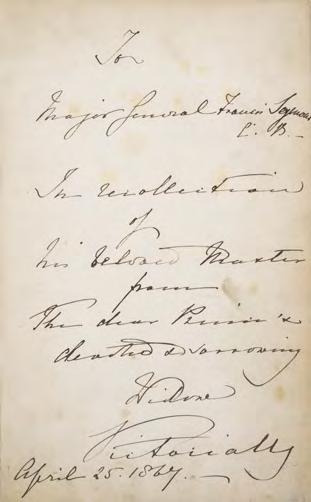 To
Major General Francis Seymour
C. B.
In recollection
of
his beloved Master
from
The dear Prince's
devoted & sorrowing
Widow
Victoria R
April 25. 1867.